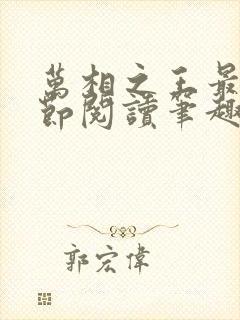 萬相之王最
節閱讀筆趣
郭宏偉